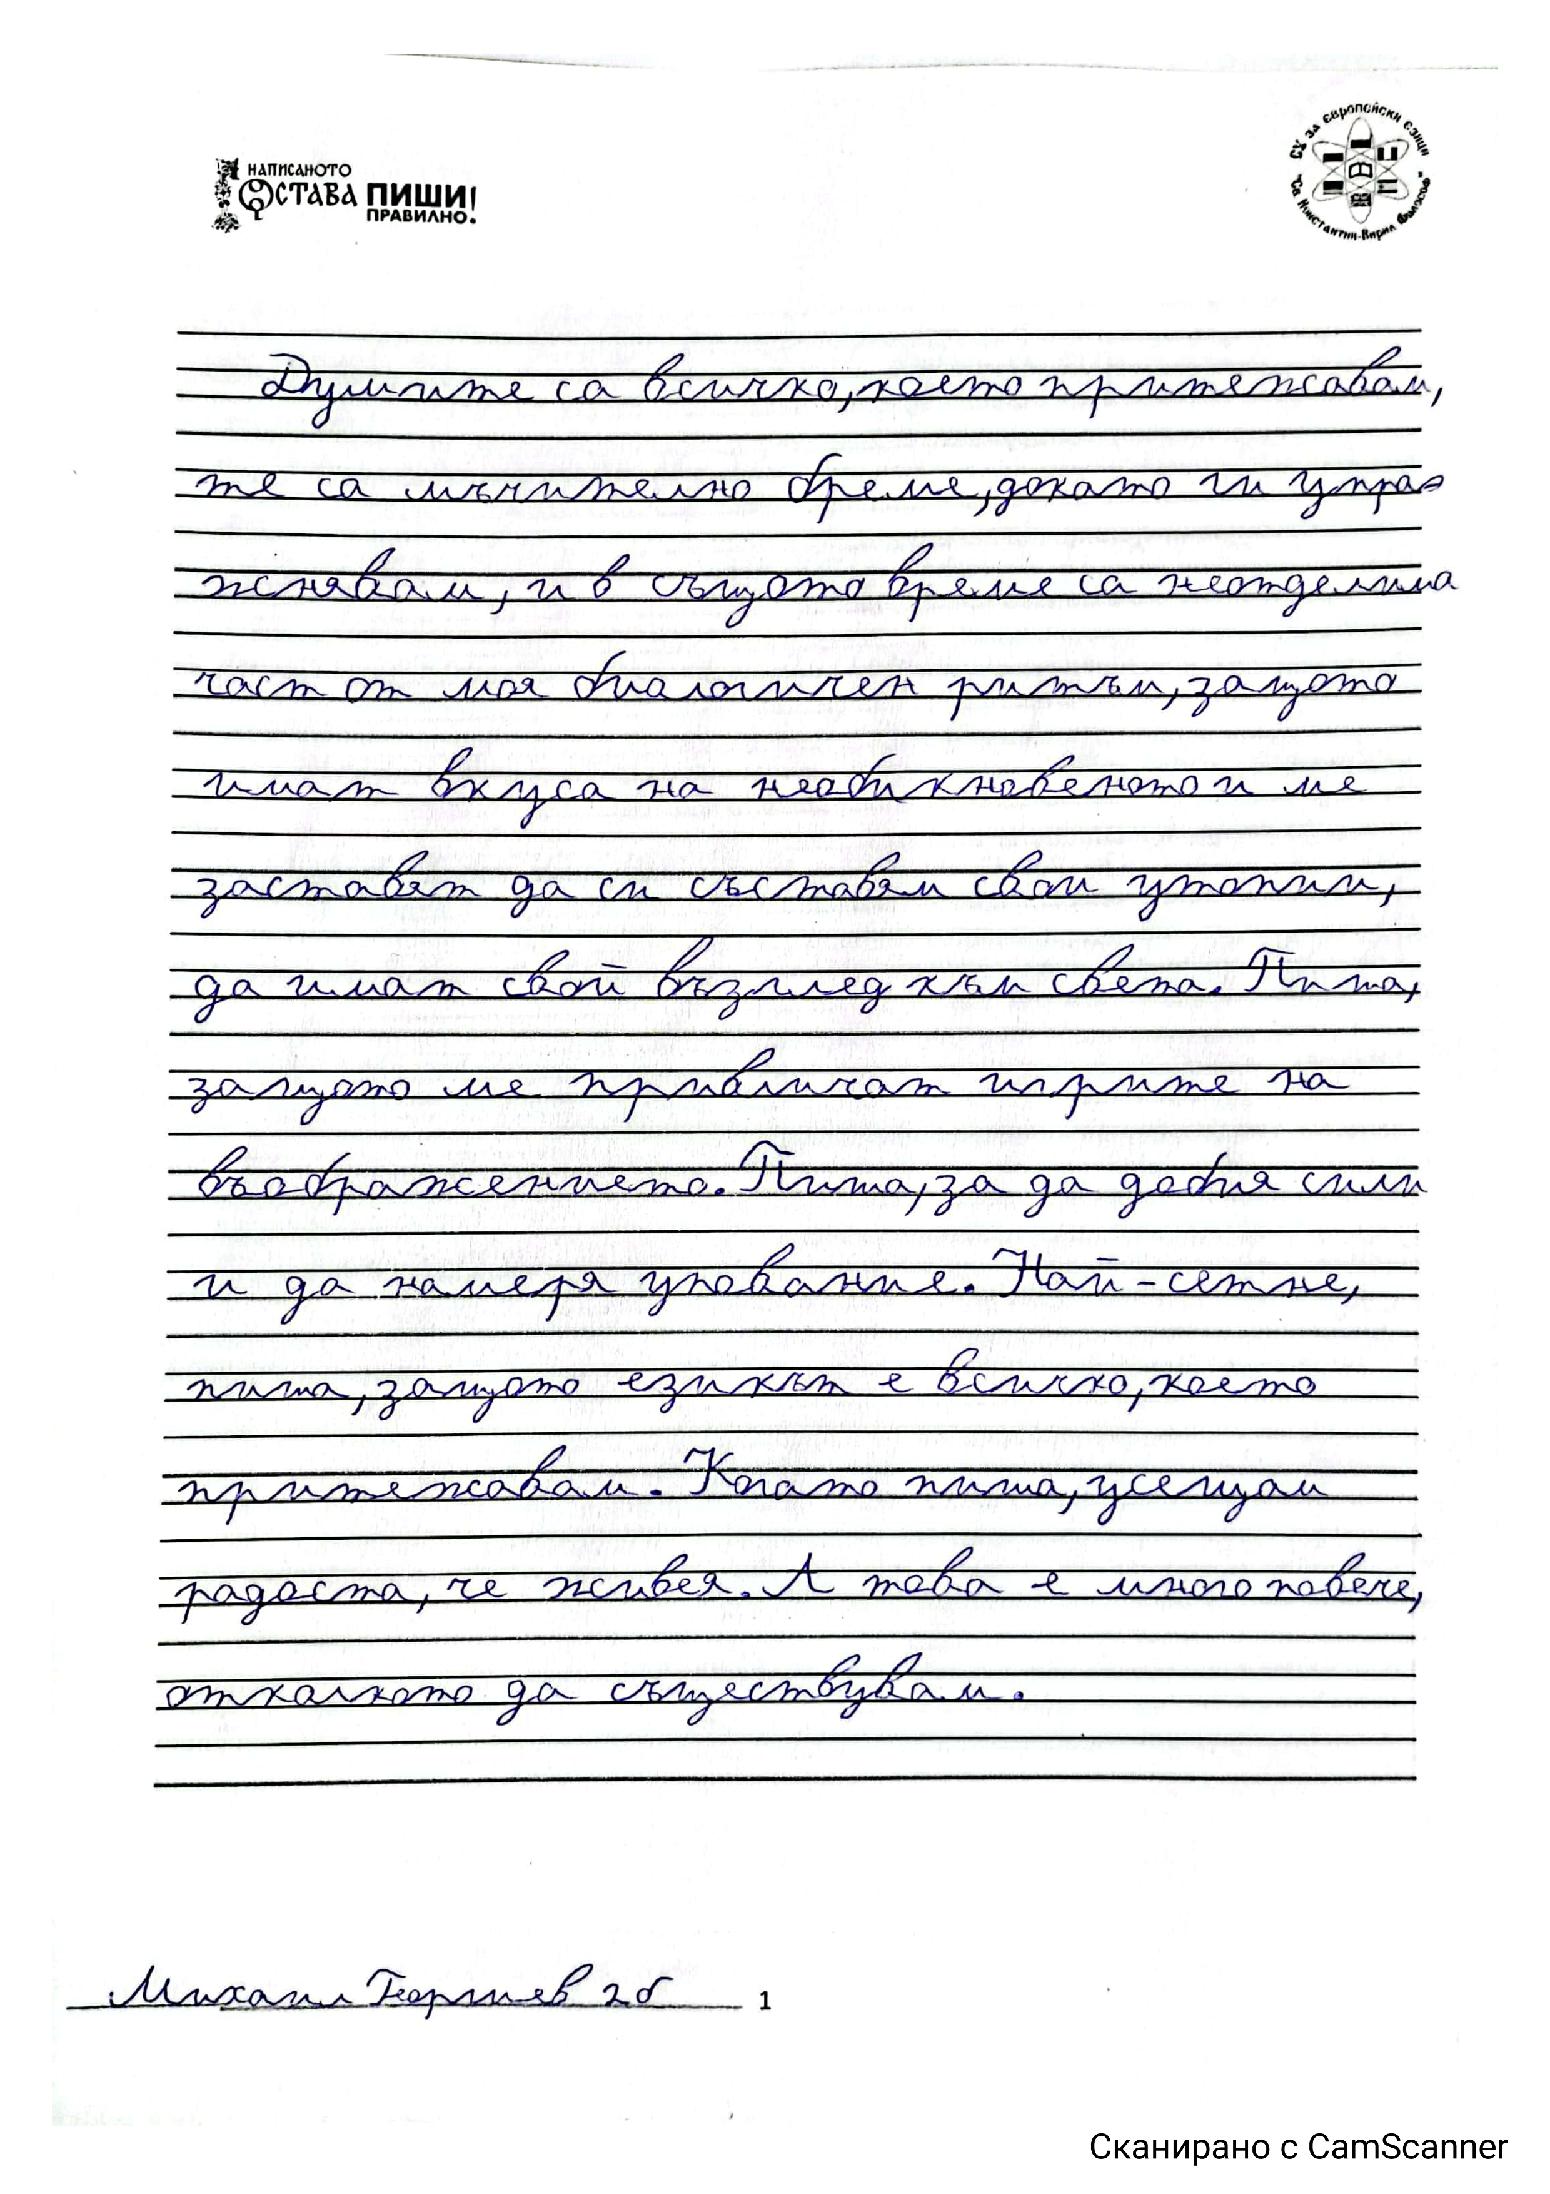 НАПИСАНОТО
ОСТАВА ПИШИ!
ПРАВИЛНО.
СУ за европейски езици
"Св. Константин-Кирил Философ"
Думите са всичко, което притежавам,
те са мъчително бреме, докато ги упра-
жнявам, и в същото време са неотделима
част от моя биологичен ритъм, защото
имат вкуса на необикновеното и ме
заставят да си съставям свои утопии,
да имат свой възглед към света. Пиша,
защото ме привличат игрите на
въображението. Пиша, за да добия сили
и да намеря упование. Най-сетне,
пиша, защото езикът е всичко, което
притежавам. Когато пиша, усещам
радостта, че живея. А това е много повече,
отколкото да съществувам.
Михаил Георгиев 2б 1
Сканирано с CamScanner